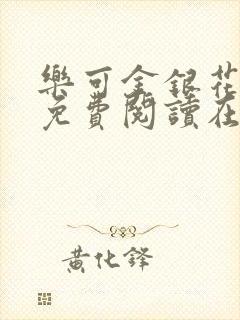 樂可金銀花
免費閱讀在
黃化鋒